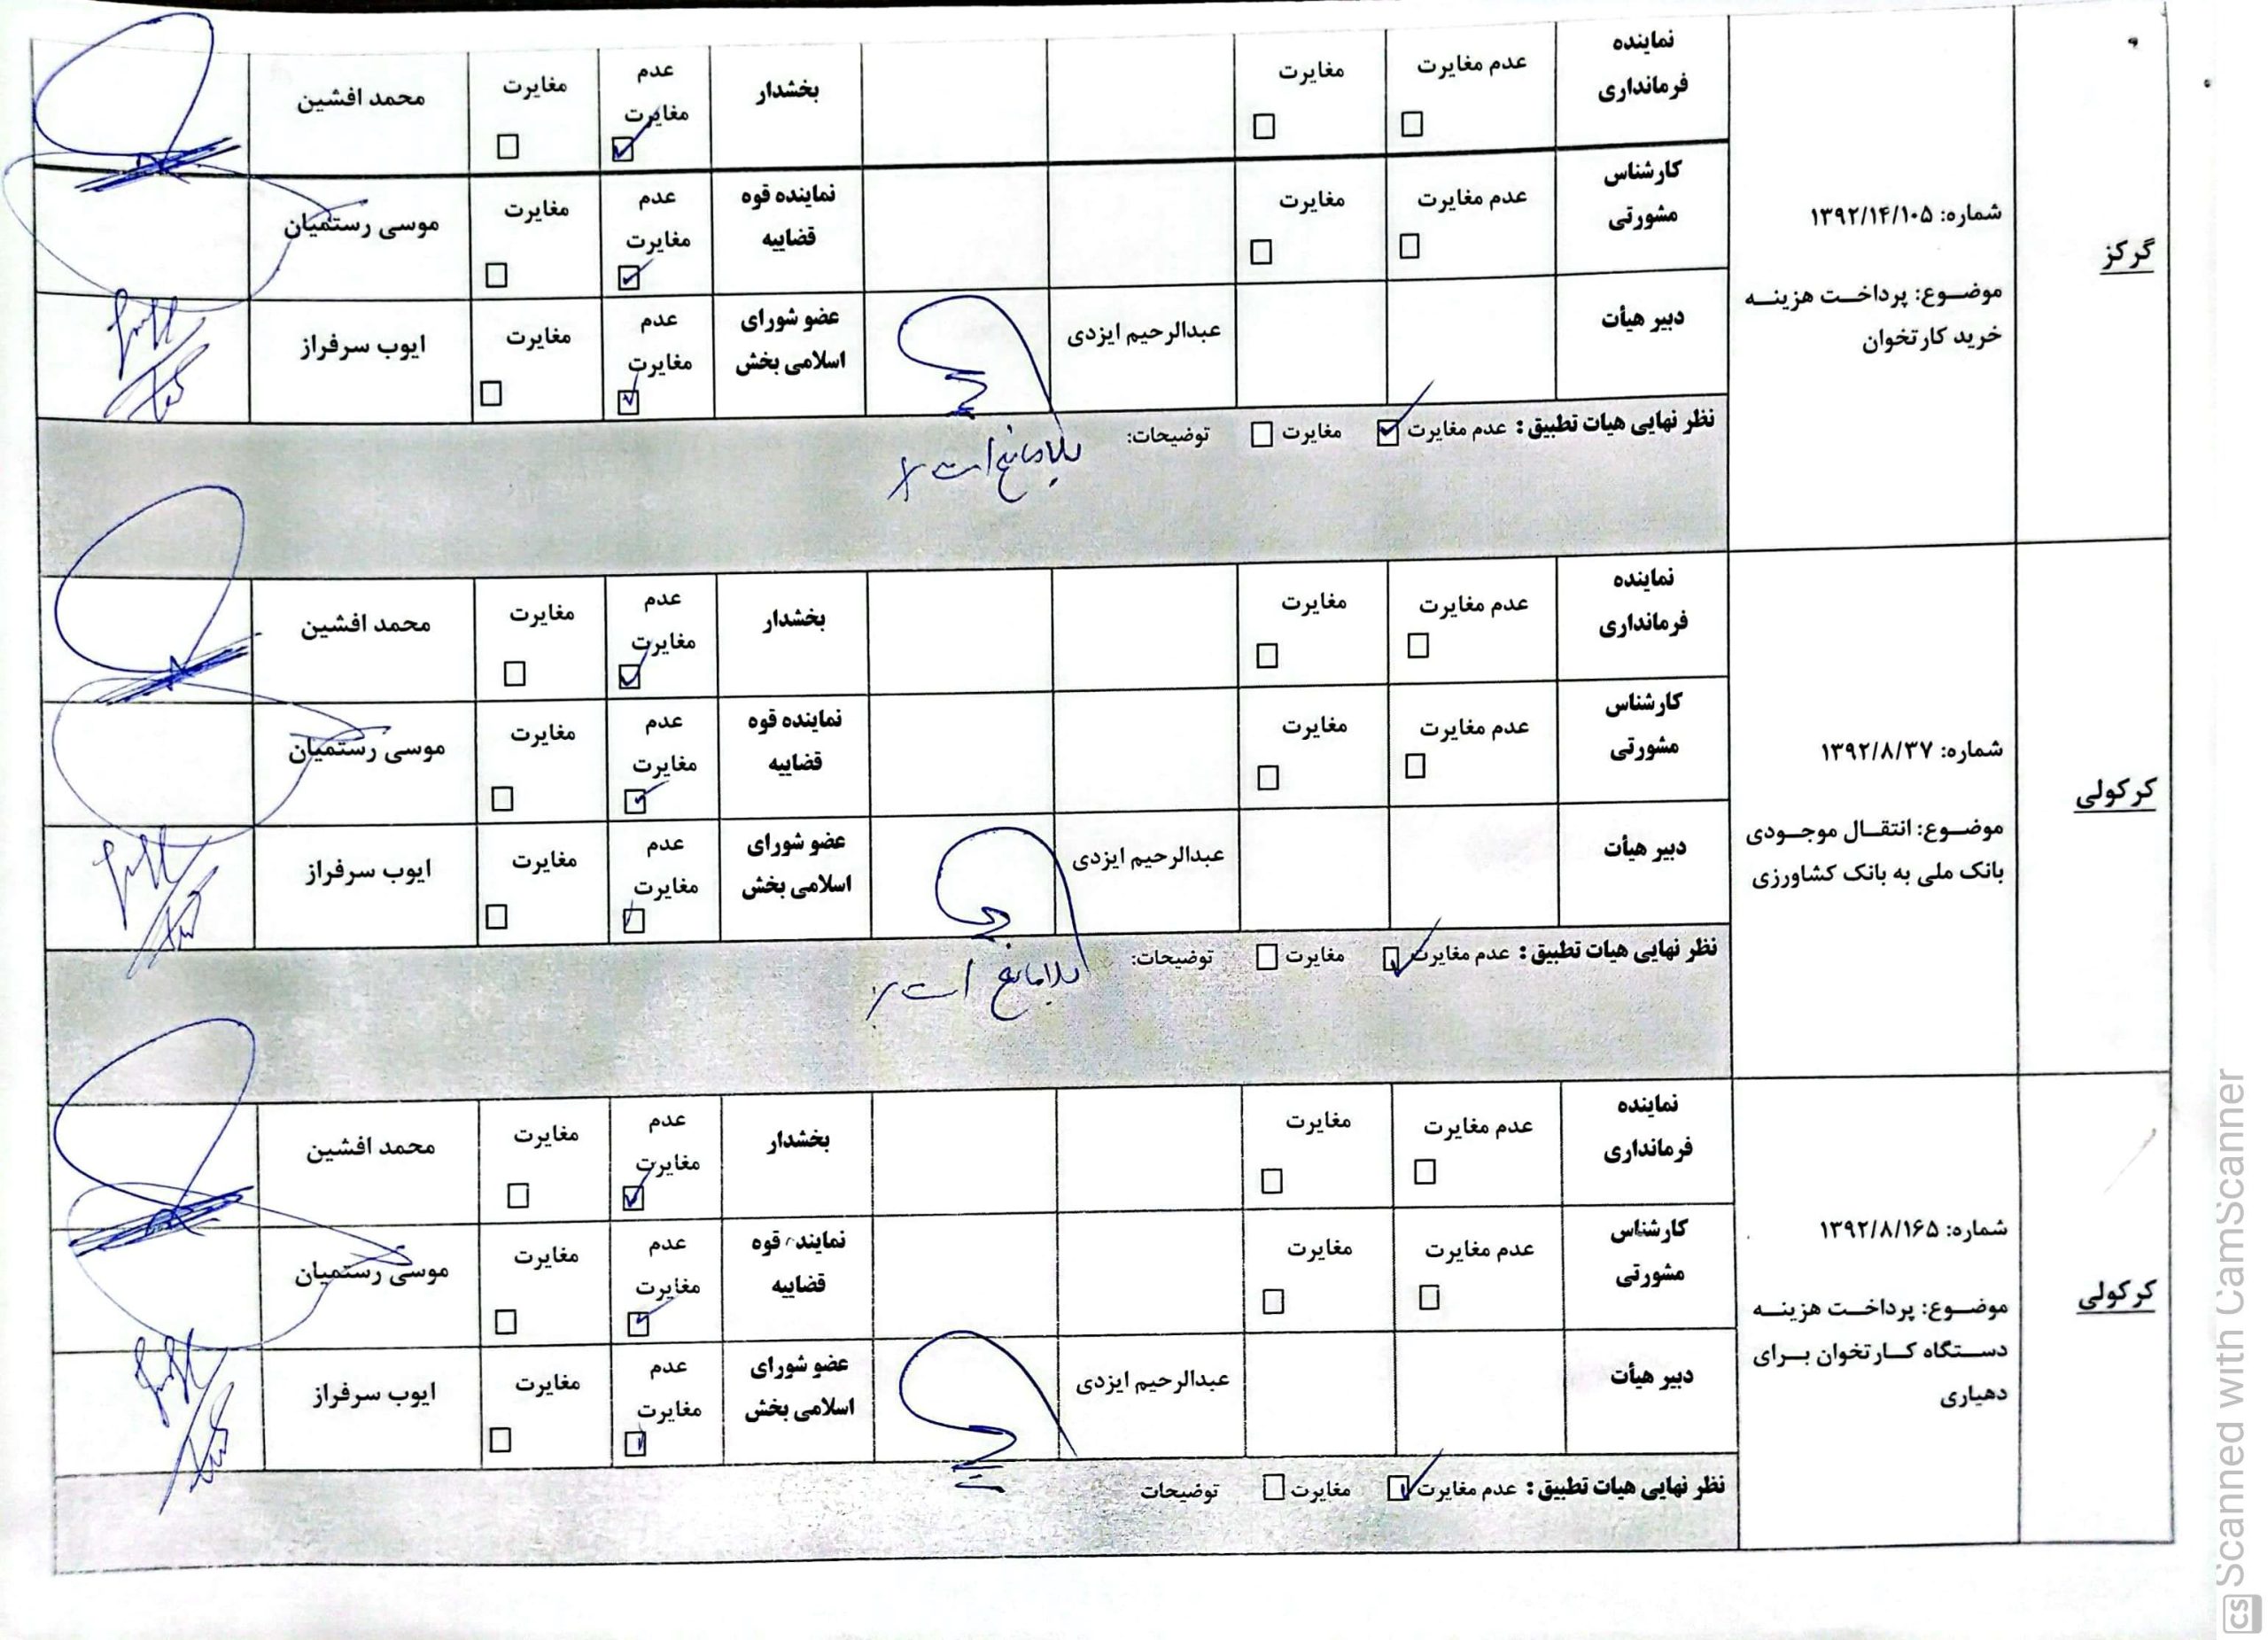 گرکز
شماره: ۱۳۹۲/۱۴/۱۰۵
موضوع: پرداخت هزینه
خرید کارتخوان
نماینده
فرمانداری
عدم مغایرت
مغایرت
بخشدار
عدم
مغایرت
مغایرت
محمد افشین
کارشناس
مشورتی
عدم مغایرت
مغایرت
نماینده قوه
قضاییه
عدم
مغایرت
مغایرت
موسی رستمیان
دبیر هیأت
عبدالرحیم ایزدی
عضو شورای
اسلامی بخش
عدم
مغایرت
مغایرت
ایوب سرفراز
نظر نهایی هیات تطبیق: عدم مغایرت مغایرت توضیحات:
بلامانع است
کرکولی
شماره: ۱۳۹۲/۸/۳۷
موضوع: انتقال موجودی
بانک ملی به بانک کشاورزی
نماینده
فرمانداری
عدم مغایرت
مغایرت
بخشدار
عدم
مغایرت
مغایرت
محمد افشین
کارشناس
مشورتی
عدم مغایرت
مغایرت
نماینده قوه
قضاییه
عدم
مغایرت
مغایرت
موسی رستمیان
دبیر هیأت
عبدالرحیم ایزدی
عضو شورای
اسلامی بخش
عدم
مغایرت
مغایرت
ایوب سرفراز
نظر نهایی هیات تطبیق: عدم مغایرت مغایرت توضیحات:
بلامانع است
کرکولی
شماره: ۱۳۹۲/۸/۱۶۵
موضوع: پرداخت هزینه
دستگاه کارتخوان برای
دهیاری
نماینده
فرمانداری
عدم مغایرت
مغایرت
بخشدار
عدم
مغایرت
مغایرت
محمد افشین
کارشناس
مشورتی
عدم مغایرت
مغایرت
نماینده قوه
قضاییه
عدم
مغایرت
مغایرت
موسی رستمیان
دبیر هیأت
عبدالرحیم ایزدی
عضو شورای
اسلامی بخش
عدم
مغایرت
مغایرت
ایوب سرفراز
نظر نهایی هیات تطبیق: عدم مغایرت مغایرت توضیحات
CS Scanned with CamScanner